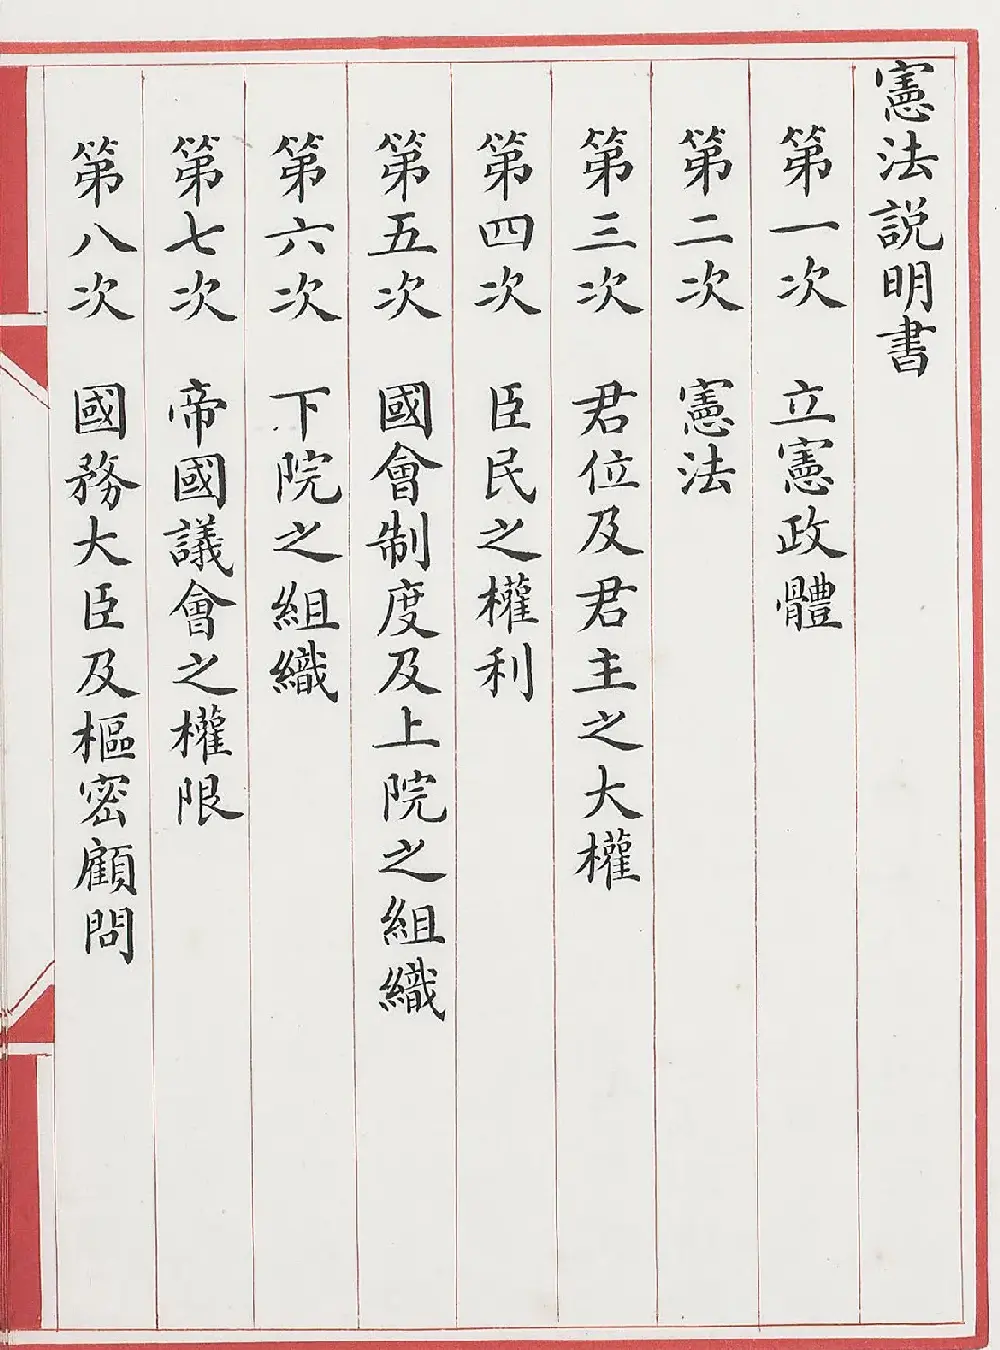 憲法説明書
第一次 立憲政體
第二次 憲法
第三次 君位及君主之大權
第四次 臣民之權利
第五次 國會制度及上院之組織
第六次 下院之組織
第七次 帝國議會之權限
第八次 國務大臣及樞密顧問